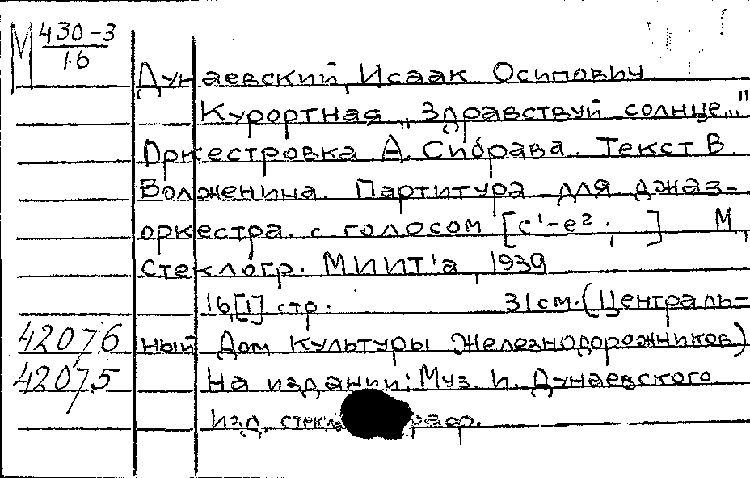 М 430-3
16
Дунаевский, Исаак Осипович
Курортная „Здравствуй солнце..."
Оркестровка А. Сиврава. Текст В.
Волженина. Партитура для джаз-
оркестра с голосом [c¹-e²; ] М.,
стеклогр. МИИТ'а, 1939
16,[1] стр. 31см. (Централь-
42076 ный Дом Культуры Железнодорожников)
42075 На издании: Муз. И. Дунаевского
Изд. стекл